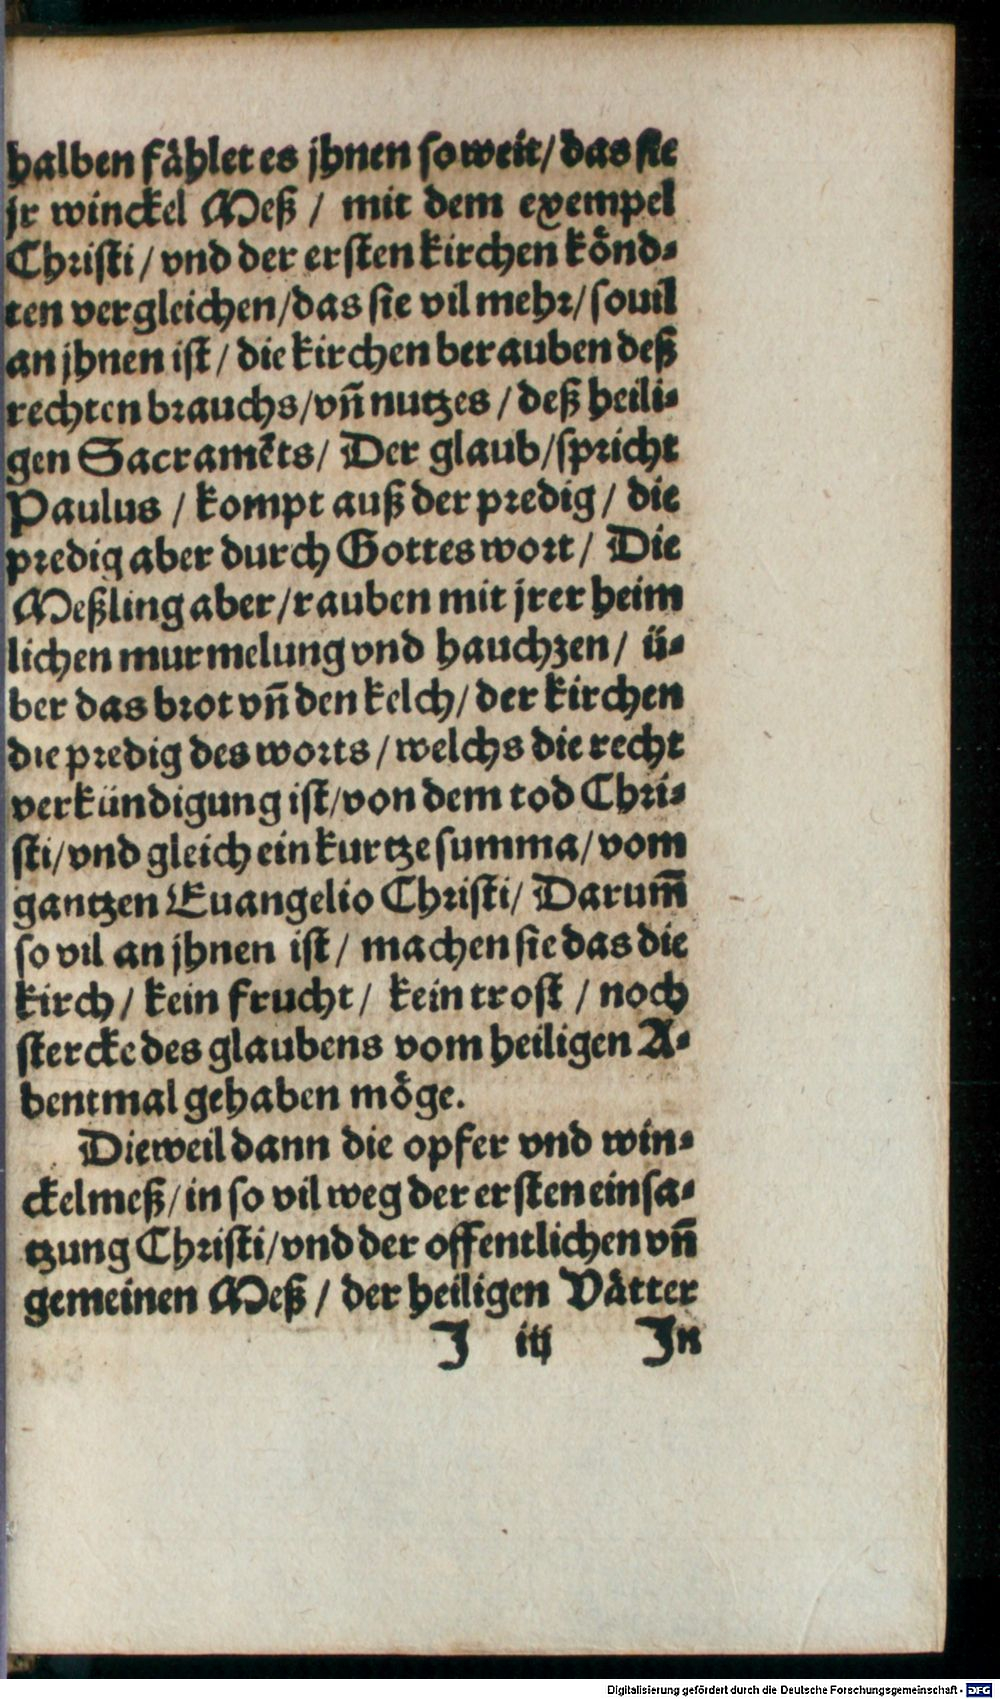 halben fåhlet es jhnen so weit/ das sie
jr winckel Meß / mit dem exempel
Christi / vnd der ersten kirchen kônd⸗
ten vergleichen/das sie vil mehr/ souil
an jhnen ist / die kirchen berauben deß
rechten brauchs/vñ nutzes / deß heili⸗
gen Sacramēts/ Der glaub/spricht
Paulus / kompt auß der predig / die
predig aber durch Gottes wort / Die
Meßling aber/rauben mit jrer heim
lichen murmelung vnd hauchzen / ü⸗
ber das brot vñ den kelch/ der kirchen
die predig des worts / welchs die recht
verkündigung ist/von dem tod Chri⸗
sti/vnd gleich ein kurtze summa/ vom
gantzen Euangelio Christi/ Darum̃
so vil an jhnen ist / machen sie das die
kirch / kein frucht / kein trost / noch
stercke des glaubens vom heiligen A⸗
bentmal gehaben môge.
Dieweil dann die opfer vnd win⸗
ckelmeß/in so vil weg der ersten einsa⸗
tzung Christi/vnd der offentlichen vñ
gemeinen Meß / der heiligen Våtter
J iij Jn
Digitalisierung gefördert durch die Deutsche Forschungsgemeinschaft - DFG